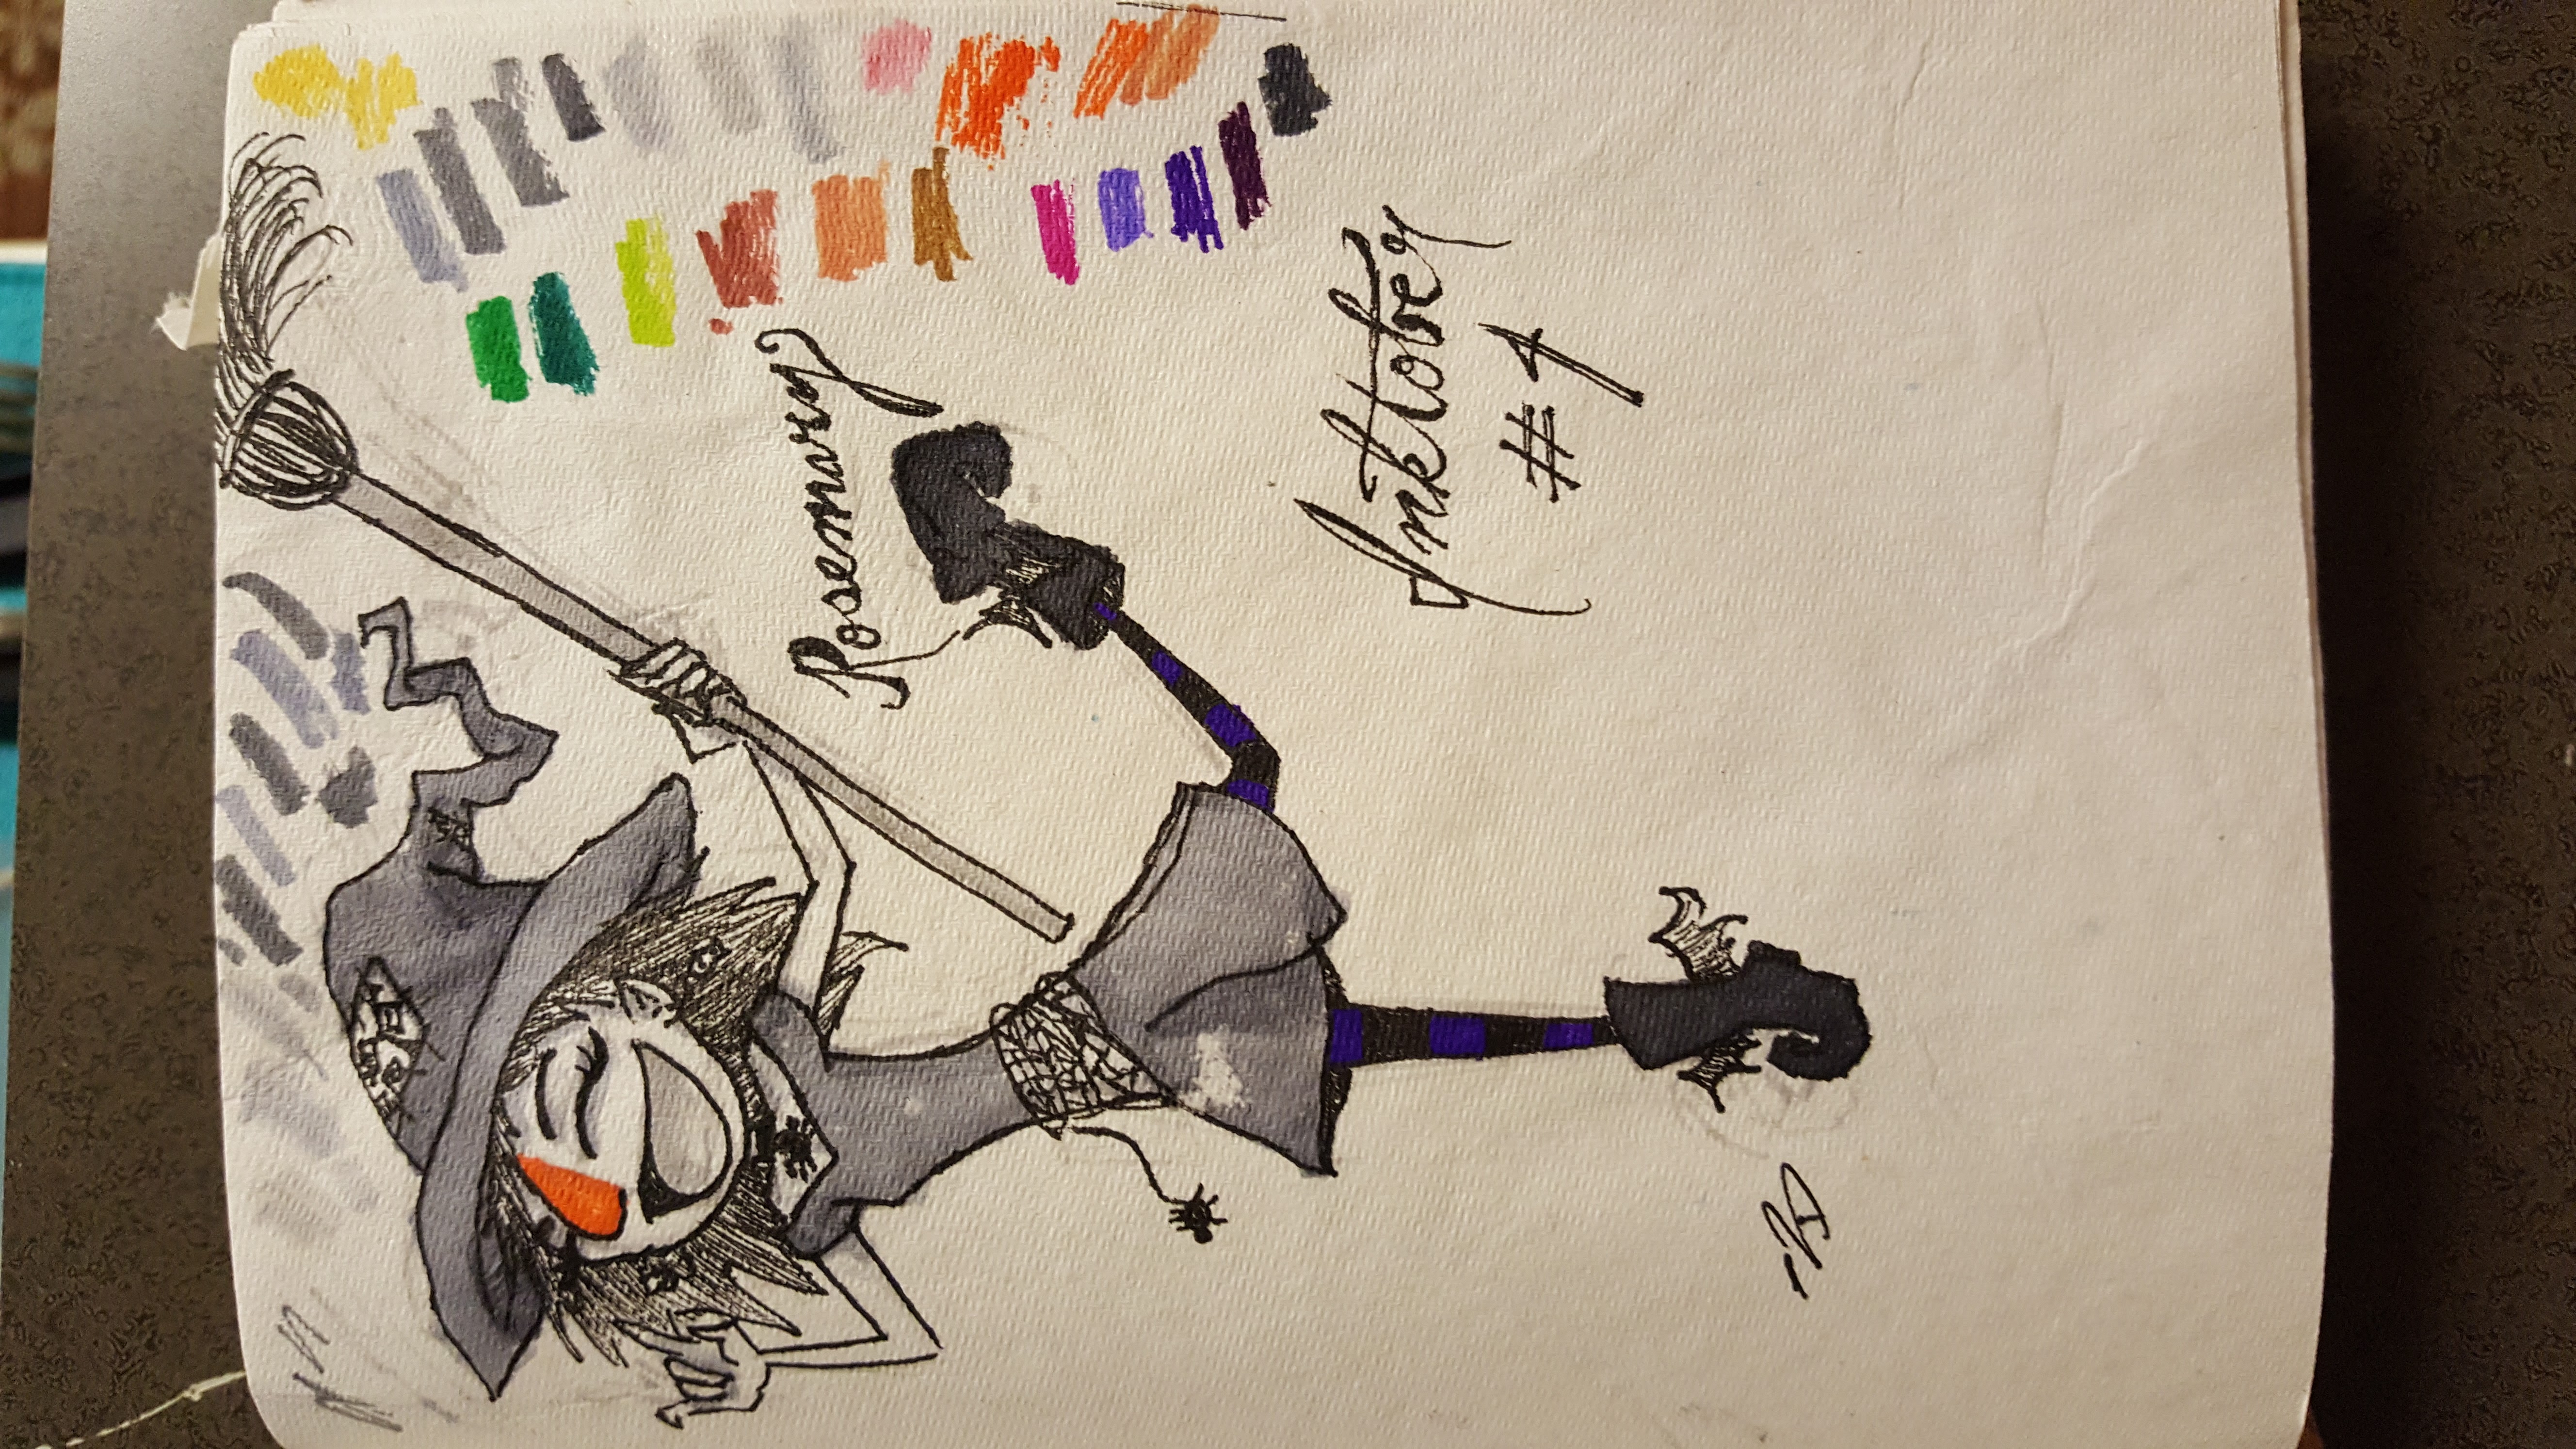 Rosemary
Inktober
#4